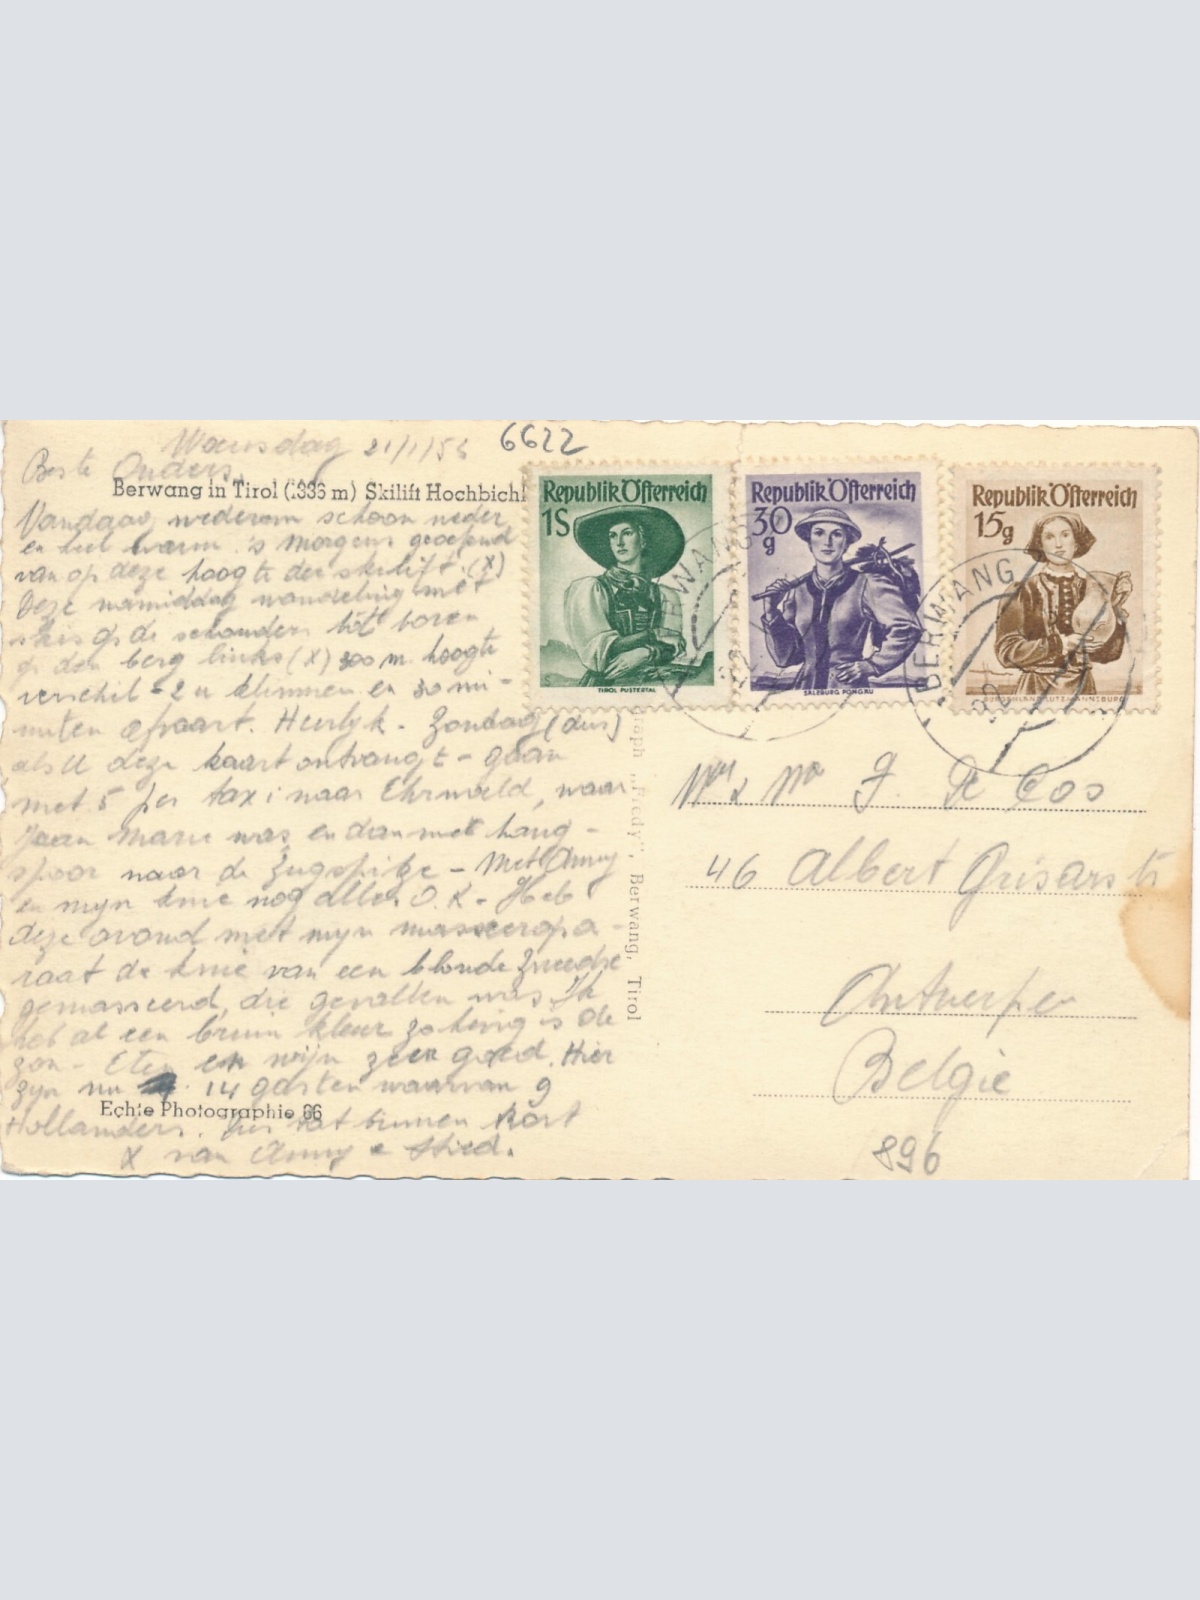 Woensdag 21/1/53
6622
Beste Ouders,
Berwang in Tirol (1336 m) Skilift Hochbichl
Vandaag wederom schoon weder
en heel warm 's morgens geoefend
van op deze hoogte der skilift (X)
Deze namiddag wandeling met
skis op de schouders tot boven
op den berg links (X) 300 m. hoogte
verschil - 2 u klimmen en 30 mi-
nuten afvaart. Heerlijk - Zondag (dus)
als U deze kaart ontvangt - gaan
met 5 per taxi naar Ehrwald, waar
Jean Marie was en dan met hang -
spoor naar de Zugspitze - Met Anny
en mijn knie nog alles O.K - Heb
deze avond met mijn masseerapa-
raat de knie van een blonde Zweedse
gemasseerd, die gevallen was. Ik
heb al een bruin kleur zo hevig is de
zon - Eten en wijn zeer goed. Hier
zijn nu 14 gasten waarvan 9
Echte Photographie 66
Hollanders. tot binnen kort
X van Anny &
graph „Fredy", Berwang, Tirol
Republik Österreich
1S
TIROL PUSTERTAL
Republik Österreich
30 g
SALZBURG PONGAU
Republik Österreich
15 g
BURGENLAND LUTZMANNSBURG
BERWANG
22
BERWANG
22
Mr & Me J. De Cos
46 Albert Grisarstr
Antwerpen
België
896